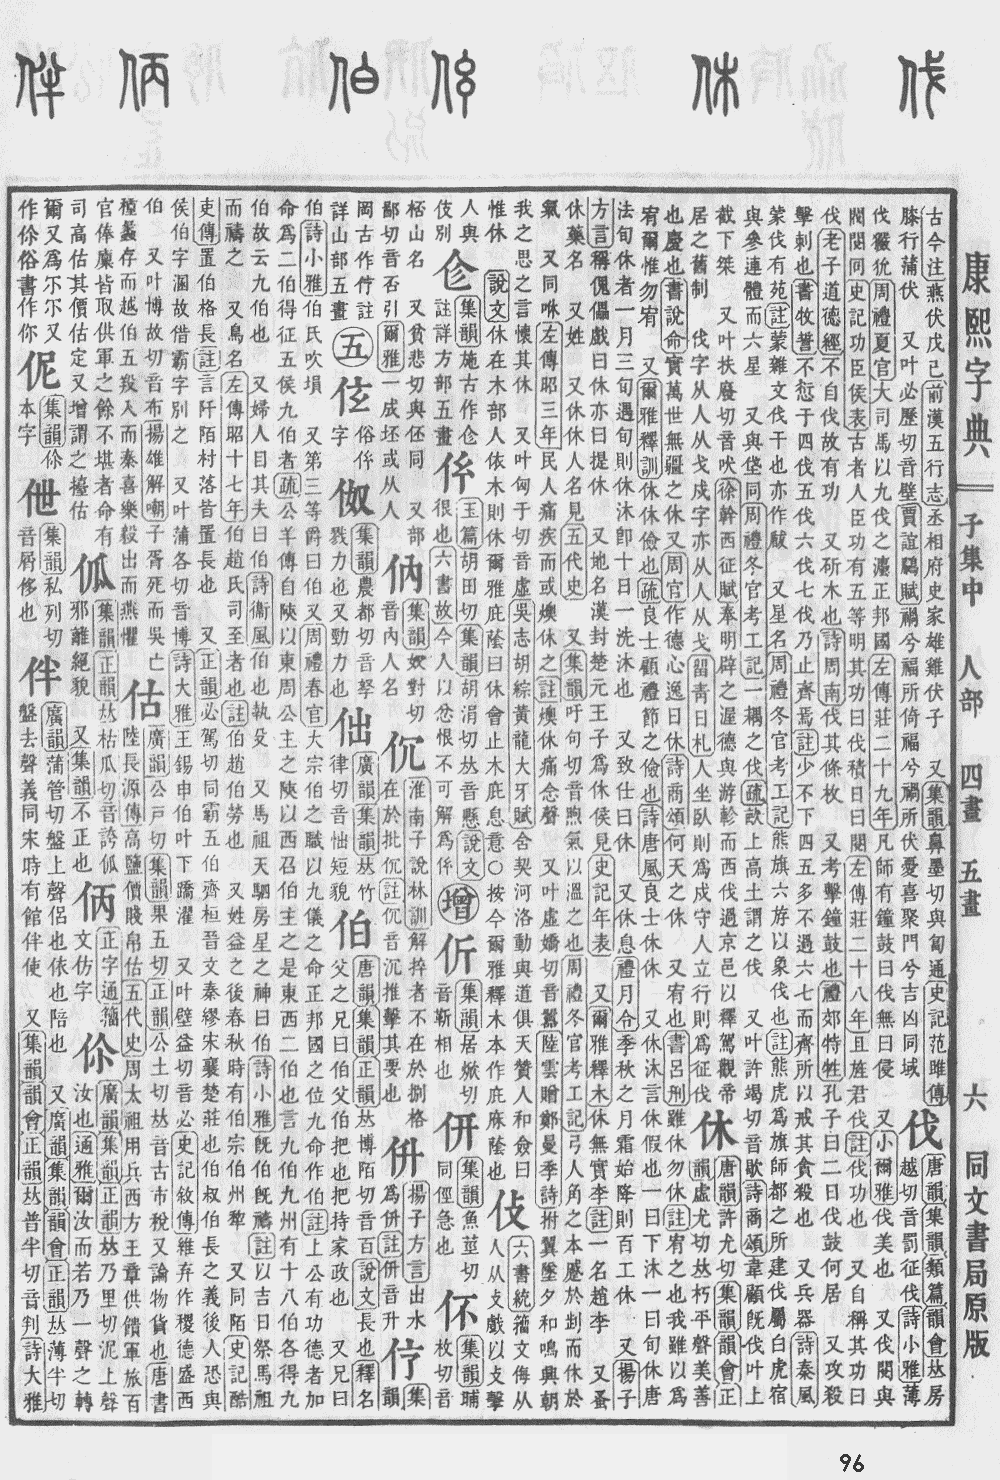 康熙字典 子集中 人部 四畫 五畫 六 同文書局原版
古今注燕伏戊己前漢五行志丞相府史家雌雞伏子 又集韻鼻墨切與匐通史記范雎傳
膝行蒲伏 又叶必歷切音壁賈誼鵩賦禍兮福所倚福兮禍所伏憂喜聚門兮吉凶同域
伐 唐韻集韻類篇韻會𠀤房
越切音罰征伐詩小雅薄
伐玁狁周禮夏官大司馬以九伐之灋正邦國左傳莊二十九年凡師有鐘鼓曰伐無曰侵 又小爾雅伐美也 又伐閱與
閥閱同史記功臣侯表古者人臣功有五等明其功曰伐積日曰閱左傳莊二十八年且旌君伐註伐功也 又自稱其功曰
伐老子道德經不自伐故有功 又斫木也詩周南伐其條枚 又考擊鐘鼓也禮郊特牲孔子曰二日伐鼓何居 又攻殺
擊刺也書牧誓不愆于四伐五伐六伐七伐乃止齊焉註少不下四五多不過六七而齊所以戒其貪殺也 又兵器詩秦風
蒙伐有苑註蒙雜文伐干也亦作瞂 又星名周禮冬官考工記熊旗六斿以象伐也註熊虎爲旗師都之所建伐屬白虎宿
與參連體而六星 又與垡同周禮冬官考工記一耦之伐疏畎上高土謂之伐 又叶許竭切音歇詩商頌韋顧旣伐叶上
截下桀 又叶扶廢切音吠徐幹西征賦奉明辟之渥德與游軫而西伐過京邑以釋駕觀帝
居之舊制 伐字从人从戈戍字亦从人从戈留靑日札人坐臥則爲戍守人立行則爲征伐
休 唐韻許尤切集韻韻會正
韻虛尤切𠀤朽平聲美善
也慶也書說命實萬世無疆之休又周官作德心逸日休詩商頌何天之休 又宥也書呂刑雖休勿休註宥之也我雖以爲
宥爾惟勿宥 又爾雅釋訓休休儉也疏良士顧禮節之儉也詩唐風良士休休 又休沐言休假也一曰下沐一曰旬休唐
法旬休者一月三旬遇旬則休沐卽十日一洗沐也 又致仕曰休 又休息禮月令季秋之月霜始降則百工休 又揚子
方言稱傀儡戲曰休亦曰提休 又地名漢封楚元王子爲休侯見史記年表 又爾雅釋木休無實李註一名趙李 又蚤
休藥名 又姓 又休休人名見五代史 又集韻吁句切音煦氣以溫之也周禮冬官考工記弓人角之本蹙於𠜶而休於
氣 又同咻左傳昭三年民人痛疾而或燠休之註燠休痛念聲 又叶虛嬌切音囂陸雲贈鄭曼季詩拊翼墜夕和鳴興朝
我之思之言懷其休 又叶匈于切音虛吳志胡綜黃龍大牙賦舍契河洛動與道俱天贊人和僉曰
惟休 說文休在木部人依木則休爾雅庇蔭曰休會止木庇息意○按今爾雅釋木本作庇庥蔭也
伎 六書統籀文侮从
人从攴戲以攴擊
人與
伎別
㐱 集韻施古作㐱
註詳方部五畫
㐸 玉篇胡田切集韻胡涓切𠀤音懸說文
很也六書故今人以忿恨不可解爲㐸
增
伒 集韻居焮切
音靳相也
伻 集韻魚莖切
同俓急也
伓 集韻晡
枚切音
柸山名 又貧悲切與伾同 又部
鄙切音否引爾雅一成坯或从人
㐻 集韻奴對切
音內人名
伔 淮南子說林訓解捽者不在於捌格
在於批伔註伔音沉推擊其要也
倂 揚子方言出水
爲倂註倂音升
㐼 集
韻
岡古作㐼註
詳山部五畫
五
伭 俗㐸
字
伮 集韻農都切音孥
戮力也又勤力也
㑁 廣韻集韻𠀤竹
律切音怞短貌
伯 唐韻集韻正韻𠀤博陌切音百說文長也釋名
父之兄曰伯父伯把也把持家政也 又兄曰
伯詩小雅伯氏吹塤 又第三等爵曰伯又周禮春官大宗伯之職以九儀之命正邦國之位九命作伯註上公有功德者加
命爲二伯得征五侯九伯者疏公羊傳自陝以東周公主之陝以西召伯主之是東西二伯也言九伯九州有十八伯各得九
伯故云九伯也 又婦人目其夫曰伯詩衞風伯也執殳 又馬祖天駟房星之神曰伯詩小雅旣伯旣禱註以吉日祭馬祖
而禱之 又鳥名左傳昭十七年伯趙氏司至者也註伯趙伯勞也 又姓益之後春秋時有伯宗伯州犂 又同陌史記酷
吏傳置伯格長註言阡陌村落皆置長也 又正韻必駕切同霸五伯齊桓晉文秦繆宋襄楚莊也伯叔伯長之義後人恐與
侯伯字溷故借霸字別之 又叶蒲各切音博詩大雅王錫申伯叶下蹻濯 又叶壁益切音必史記敘傳維弃作稷德盛西
伯 又叶博故切音布揚雄解嘲子胥死而吳亡
種蠡存而越伯五羖入而秦喜樂毅出而燕懼
估 廣韻公戸切集韻果五切正韻公土切𠀤音古市稅又論物貨也唐書
陸長源傳高鹽價賤帛估五代史周太祖用兵西方王章供饋軍旅百
官俸廩皆取供軍之餘不堪者命有
司高估其價估定又增謂之擡估
㑌 集韻正韻𠀤枯瓜切音誇㑌
邪離絕貌 又集韻不正也
㑂 正字通籀
文仿字
伱 廣韻集韻正韻𠀤乃里切泥上聲
汝也通雅爾汝而若乃一聲之轉
爾又爲尒尓又
作伱俗書作你
伲 集韻伱
本字
伳 集韻私列切
音屑偧也
伴 廣韻蒲管切盤上聲侶也依也陪也 又廣韻集韻韻會正韻𠀤薄半切
盤去聲義同宋時有館伴使 又集韻韻會正韻𠀤普半切音判詩大雅
96